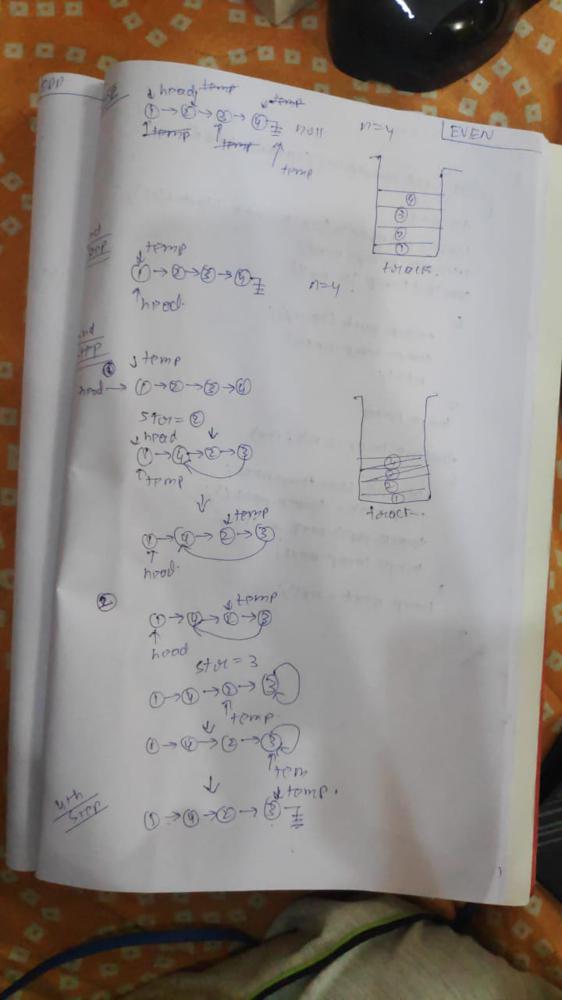 ↓ head temp
① → ② → ③ → ④ null n=4 EVEN
temp temp temp
④
③
②
①
track.
↓ temp
① → ② → ③ → ④ n=4
↑ head.
step
① ↓ temp
head → ① → ② → ③ → ④
stor = ②
↓ head ↓
① → ④ → ② → ③
↑ temp
④
③
②
①
track.
↓
↓ temp
① → ④ → ② → ③
↑ head.
② ↓ temp
① → ④ → ② → ③
↑ head
stor = 3
① → ④ → ② → ③
↑ temp.
① → ④ → ② → ③
↑ tem
↓
4th step
↓ temp.
① → ④ → ② → ③